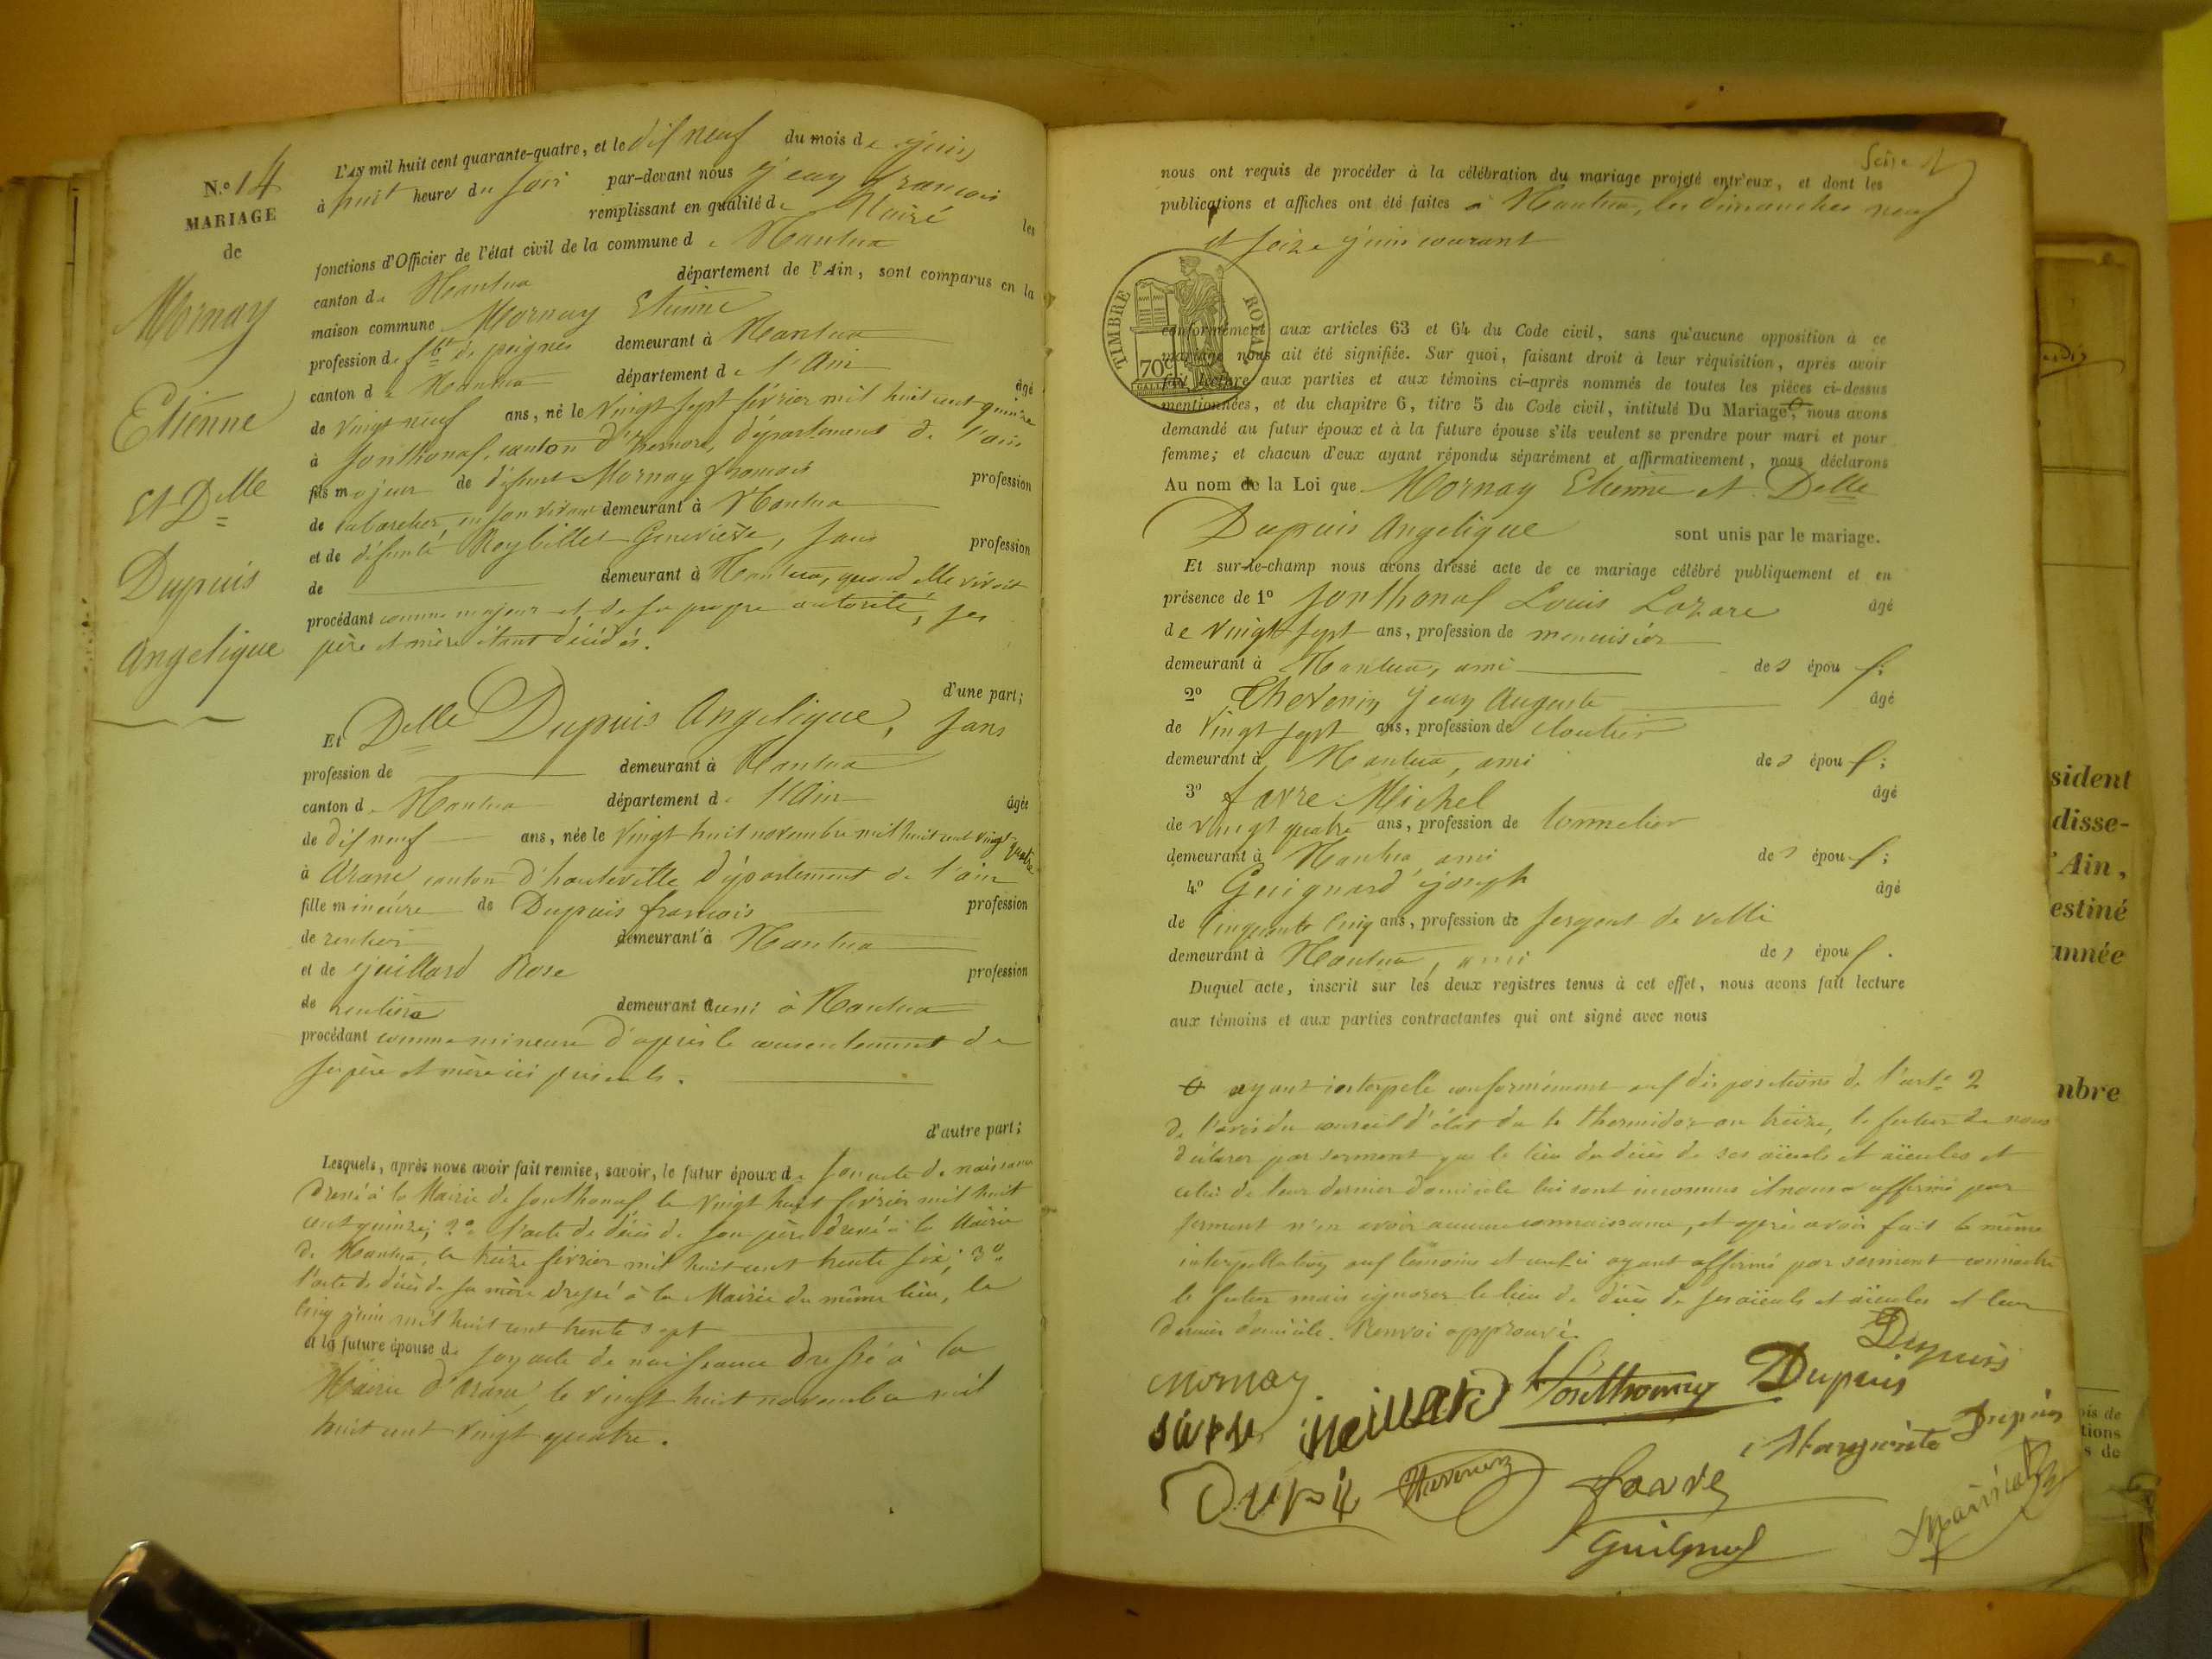 N.o 14
MARIAGE
de
Mornay
Etienne
Et Delle
Dupuis
Angelique
L'AN mil huit cent quarante-quatre, et le dif neuf du mois de juin
à huit heures du soir par-devant nous Jean François
remplissant en qualité de Maire les
fonctions d'Officier de l'état civil de la commune de Nantua
canton de Nantua département de l'Ain, sont comparus en la
maison commune Mornay Etienne
profession de fbt de peignes demeurant à Nantua
canton de Nantua département de l'Ain âgé
de vingt neuf ans, né le vingt sept février mil huit cent quinze
à Sonthonaf, canton d'Izernore, département de l'ain
fils majeur de défunt Mornay françois profession
de cabaretier, en son vivant demeurant à Nantua
et de défunte Reybillet Geneviève, sans profession
de demeurant à Nantua, quand elle vivait
procédant comme majeur et de sa propre autorité, ses
père et mère étant décédés.
d'une part;
Et Delle Dupuis Angelique, sans
profession de demeurant à Nantua
canton de Nantua département de l'Ain âgée
de dif neuf ans, née le vingt huit novembre mil huit cent vingt quatre
à Arane canton d'hauteville département de l'ain
fille mineure de Dupuis francois profession
de rentier demeurant à Nantua
et de Juillard Rose profession
de rentière demeurant aussi à Nantua
procédant comme mineure d'après le consentement de
ses père et mère ici présents.
d'autre part;
Lesquels, après nous avoir fait remise, savoir, le futur époux de son acte de naissance
dressé à la Mairie de Sonthonaf, le vingt huit février mil huit
cent quinze; 2o l'acte de décès de son père dressé à la Mairie
de Nantua, le treize février mil huit cent trente six; 3o
l'acte de décès de sa mère dressé à la Mairie du même lieu, le
cinq juin mil huit cent trente sept
et la future épouse de son acte de naissance dressé à la
Mairie d'Arane, le vingt huit novembre mil
huit cent vingt quatre.
nous ont requis de procéder à la célébration du mariage projeté entr'eux, et dont les
publications et affiches ont été faites à Nantua, les dimanches neuf
et seize juin courant
TIMBRE ROYAL
70c
conformément aux articles 63 et 64 du Code civil, sans qu'aucune opposition à ce
mariage nous ait été signifiée. Sur quoi, faisant droit à leur réquisition, après avoir
fait lecture aux parties et aux témoins ci-après nommés de toutes les pièces ci-dessus
mentionnées, et du chapitre 6, titre 5 du Code civil, intitulé Du Mariage, nous avons
demandé au futur époux et à la future épouse s'ils veulent se prendre pour mari et pour
femme; et chacun d'eux ayant répondu séparément et affirmativement, nous déclarons
Au nom de la Loi que Mornay Etienne et Delle
Dupuis Angelique sont unis par le mariage.
Et sur-le-champ nous avons dressé acte de ce mariage célébré publiquement et en
présence de 1o Sonthonaf Louis Lazare âgé
de vingt sept ans, profession de menuisier
demeurant à Nantua, ami des épouf;
2o Thevenin Jean Auguste âgé
de vingt sept ans, profession de cloutier
demeurant à Nantua, ami des épouf;
3o favre Michel âgé
de vingt quatre ans, profession de tonnelier
demeurant à Nantua ami des épouf;
4o Guignard Joseph âgé
de cinquante cinq ans, profession de sergent de ville
demeurant à Nantua, ami des épouf.
Duquel acte, inscrit sur les deux registres tenus à cet effet, nous avons fait lecture
aux témoins et aux parties contractantes qui ont signé avec nous
ayant interpelé conformément auf dispositions de l'arte 2
de l'avis du conseil d'état du 4 thermidor an treize, le futur de nous
déclarer par serment que le lieu du décès de ses aïeuls et aïeules et
celui de leur dernier domicile lui sont inconnus il nous a affirmé par
serment n'en avoir aucune connaissance, et après avoir fait la même
interpellation auf témoins et ceux-ci ayant affirmé par serment connaitre
le futur mais ignorer le lieu de décès de ses aïeuls et aïeules et leur
dernier domicile. Renvoi approuvé.
Dupuis
Mornay
Dupuis
Dupuis
Thevenin
favre
Guignard
sident
disse-
'Ain,
estiné
année
mbre